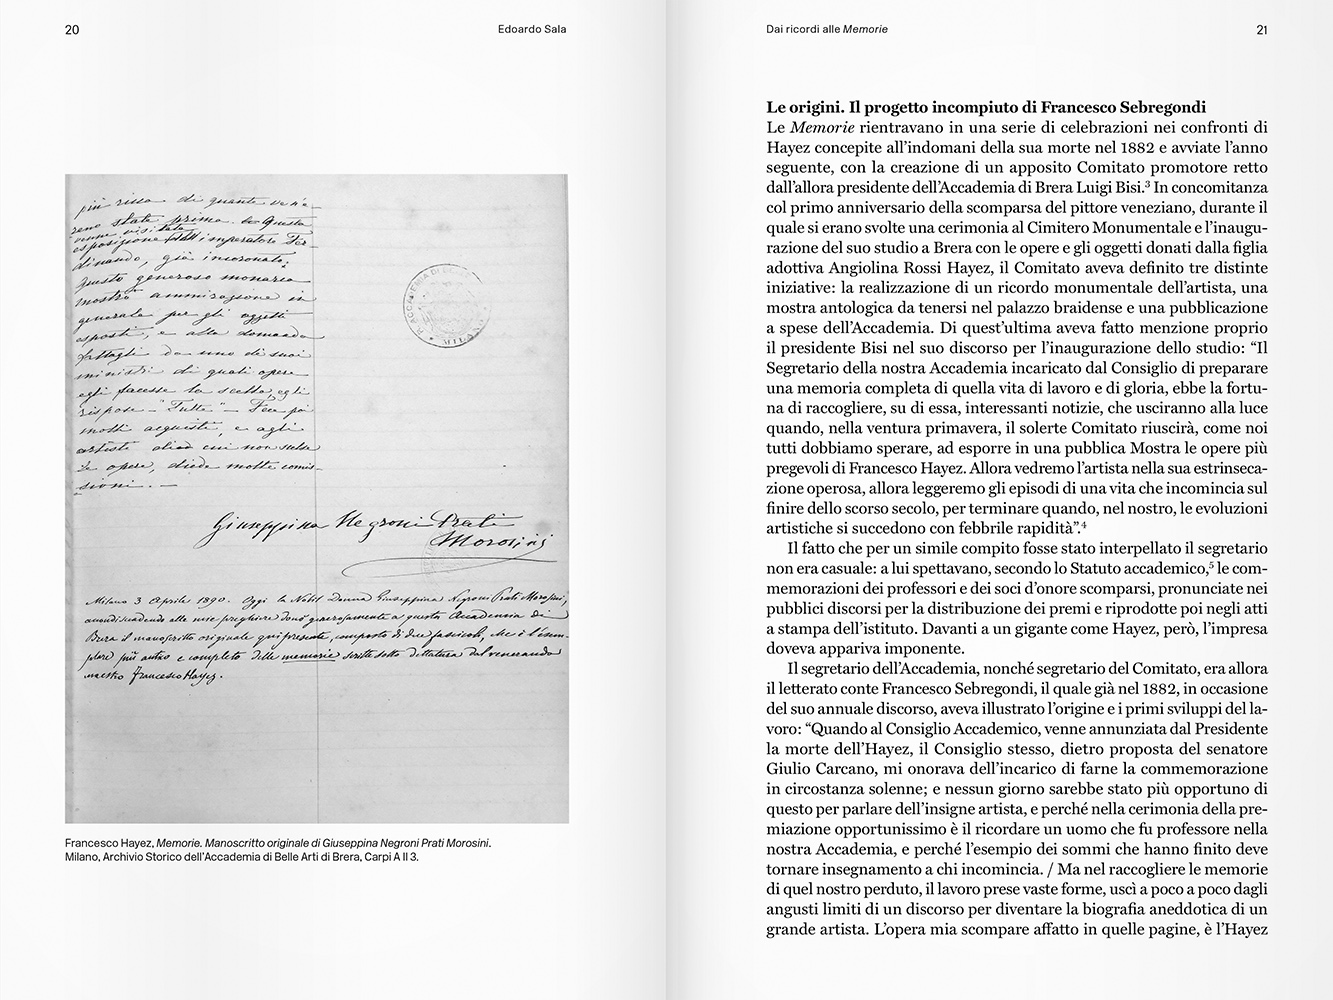 20
Edoardo Sala
più ricca di quante ve n'e-
rano state prima. La questa
venne visitata
esposizione dall'imperatore Fer-
dinando, già incoronato;
questo generoso monarca
mostrò ammirazione in
generale per gli oggetti
esposti, e alla domanda
fattagli da uno di suoi
ministri di quali opere
egli facesse la scelta, egli
rispose - "Tutte" - Fece poi
molti acquisti, e agli
artisti di cui non scelse
le opere, diede molte comis-
sioni. —
R. ACCADEMIA DI
MILANO
Giuseppina Negroni Prati
Morosini
Milano 3 Aprile 1890. Oggi la Nobil Donna Giuseppina Negroni Prati Morosini,
accondiscendendo alle mie preghiere donò generosamente a questa Accademia di
Brera il manoscritto originale qui presente, composto di due fascicoli, che è l'esem-
plare più antico e completo delle memorie scritte sotto dettatura dal venerando
maestro Francesco Hayez.
Francesco Hayez, Memorie. Manoscritto originale di Giuseppina Negroni Prati Morosini.
Milano, Archivio Storico dell'Accademia di Belle Arti di Brera, Carpi A II 3.
Dai ricordi alle Memorie
21
Le origini. Il progetto incompiuto di Francesco Sebregondi
Le Memorie rientravano in una serie di celebrazioni nei confronti di
Hayez concepite all'indomani della sua morte nel 1882 e avviate l'anno
seguente, con la creazione di un apposito Comitato promotore retto
dall'allora presidente dell'Accademia di Brera Luigi Bisi.³ In concomitanza
col primo anniversario della scomparsa del pittore veneziano, durante il
quale si erano svolte una cerimonia al Cimitero Monumentale e l'inaugu-
razione del suo studio a Brera con le opere e gli oggetti donati dalla figlia
adottiva Angiolina Rossi Hayez, il Comitato aveva definito tre distinte
iniziative: la realizzazione di un ricordo monumentale dell'artista, una
mostra antologica da tenersi nel palazzo braidense e una pubblicazione
a spese dell'Accademia. Di quest'ultima aveva fatto menzione proprio
il presidente Bisi nel suo discorso per l'inaugurazione dello studio: “Il
Segretario della nostra Accademia incaricato dal Consiglio di preparare
una memoria completa di quella vita di lavoro e di gloria, ebbe la fortu-
na di raccogliere, su di essa, interessanti notizie, che usciranno alla luce
quando, nella ventura primavera, il solerte Comitato riuscirà, come noi
tutti dobbiamo sperare, ad esporre in una pubblica Mostra le opere più
pregevoli di Francesco Hayez. Allora vedremo l'artista nella sua estrinseca-
zione operosa, allora leggeremo gli episodi di una vita che incomincia sul
finire dello scorso secolo, per terminare quando, nel nostro, le evoluzioni
artistiche si succedono con febbrile rapidità”.⁴
Il fatto che per un simile compito fosse stato interpellato il segretario
non era casuale: a lui spettavano, secondo lo Statuto accademico,⁵ le com-
memorazioni dei professori e dei soci d'onore scomparsi, pronunciate nei
pubblici discorsi per la distribuzione dei premi e riprodotte poi negli atti
a stampa dell'istituto. Davanti a un gigante come Hayez, però, l'impresa
doveva apparire imponente.
Il segretario dell'Accademia, nonché segretario del Comitato, era allora
il letterato conte Francesco Sebregondi, il quale già nel 1882, in occasione
del suo annuale discorso, aveva illustrato l'origine e i primi sviluppi del la-
voro: “Quando al Consiglio Accademico, venne annunziata dal Presidente
la morte dell'Hayez, il Consiglio stesso, dietro proposta del senatore
Giulio Carcano, mi onorava dell'incarico di farne la commemorazione
in circostanza solenne; e nessun giorno sarebbe stato più opportuno di
questo per parlare dell'insigne artista, e perché nella cerimonia della pre-
miazione opportunissimo è il ricordare un uomo che fu professore nella
nostra Accademia, e perché l'esempio dei sommi che hanno finito deve
tornare insegnamento a chi incomincia. / Ma nel raccogliere le memorie
di quel nostro perduto, il lavoro prese vaste forme, uscì a poco a poco dagli
angusti limiti di un discorso per diventare la biografia aneddotica di un
grande artista. L'opera mia scompare affatto in quelle pagine, è l'Hayez